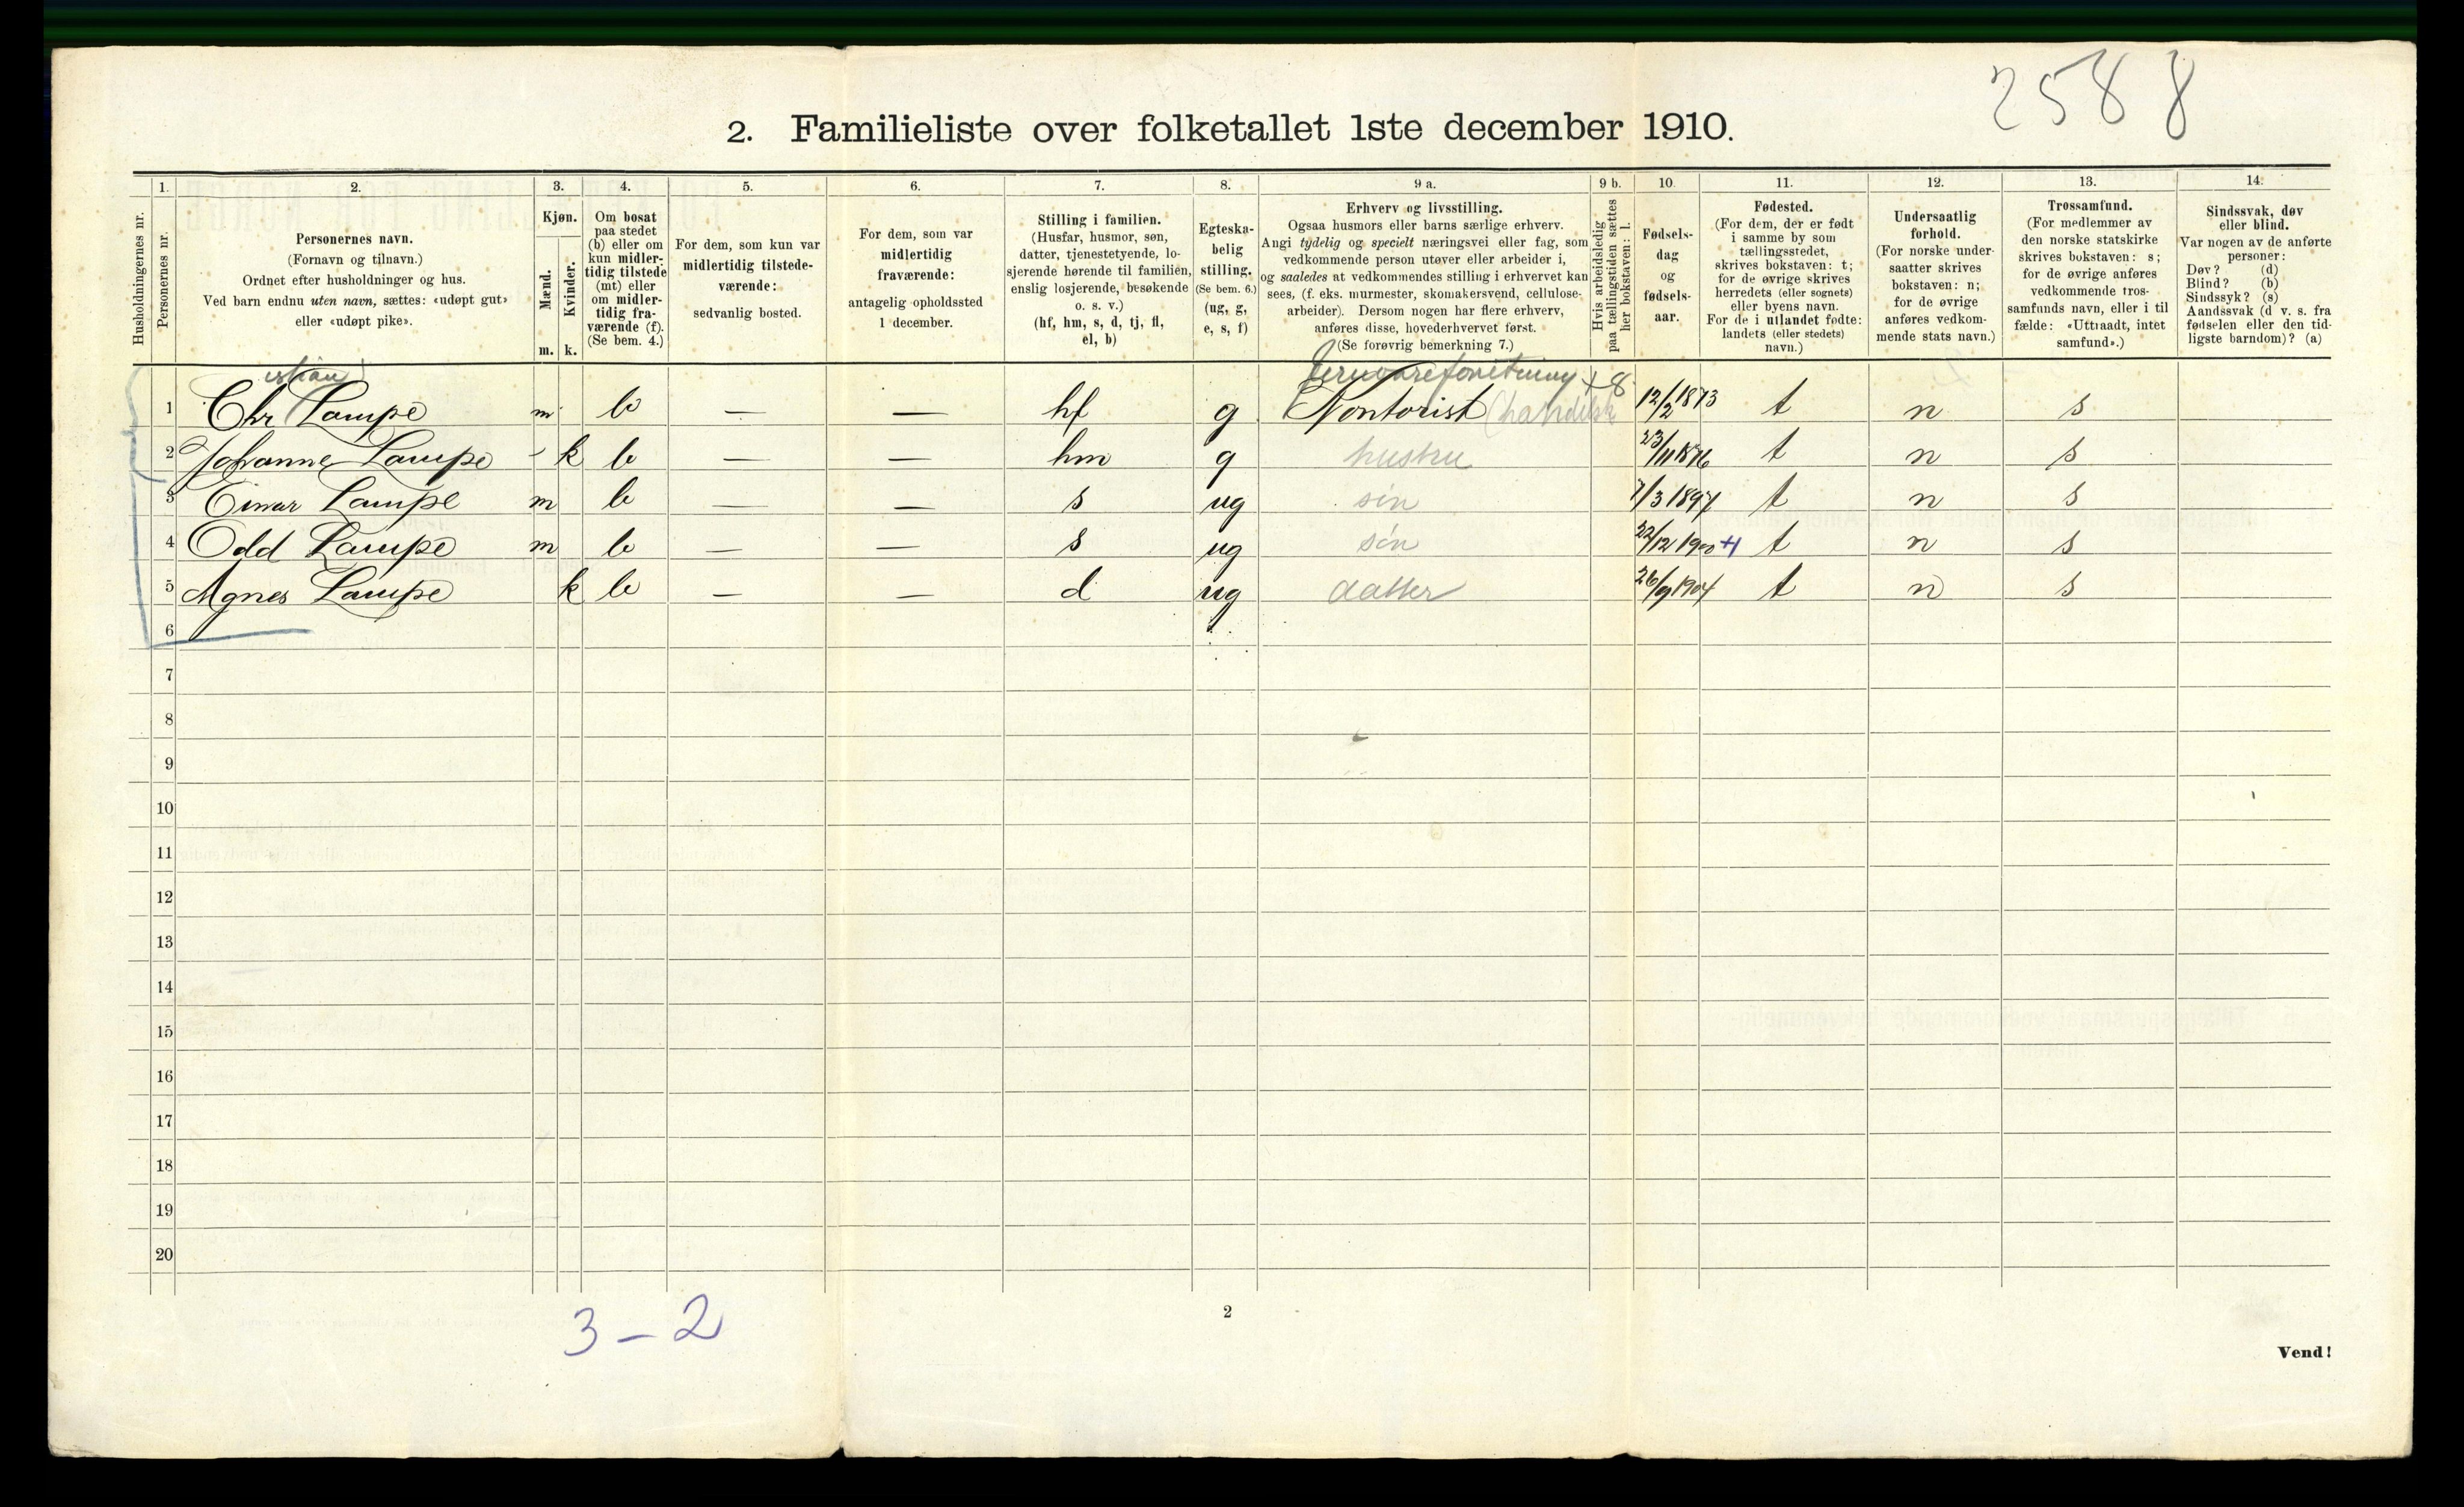 2588
2. Familieliste over folketallet 1ste december 1910.
Husholdningernes nr.
1.
Personernes nr.
2.
Personernes navn.
(Fornavn og tilnavn.)
Ordnet efter husholdninger og hus.
Ved barn endnu uten navn, sættes: «udøpt gut»
eller «udøpt pike».
3.
Kjøn.
Mænd.
Kvinder.
m. k.
4.
Om bosat
paa stedet
(b) eller om
kun midler-
tidig tilstede
(mt) eller
om midler-
tidig fra-
værende (f).
(Se bem. 4.)
5.
For dem, som kun var
midlertidig tilstede-
værende:
sedvanlig bosted.
6.
For dem, som var
midlertidig
fraværende:
antagelig opholdssted
1 december.
7.
Stilling i familien.
(Husfar, husmor, søn,
datter, tjenestetyende, lo-
sjerende hørende til familien,
enslig losjerende, besøkende
o. s. v.)
(hf, hm, s, d, tj, fl,
el, b)
8.
Egteska-
belig
stilling.
(Se bem. 6.)
(ug, g,
e, s, f)
9 a.
Erhverv og livsstilling.
Ogsaa husmors eller barns særlige erhverv.
Angi tydelig og specielt næringsvei eller fag, som
vedkommende person utøver eller arbeider i,
og saaledes at vedkommendes stilling i erhvervet kan
sees, (f. eks. murmester, skomakersvend, cellulose-
arbeider). Dersom nogen har flere erhverv,
anføres disse, hovederhvervet først.
(Se forøvrig bemerkning 7.)
9 b.
Hvis arbeidsledig
paa tællingstiden sættes
her bokstaven: l.
10.
Fødsels-
dag
og
fødsels-
aar.
11.
Fødested.
(For dem, der er født
i samme by som
tællingsstedet,
skrives bokstaven: t;
for de øvrige skrives
herredets (eller sognets)
eller byens navn.
For de i utlandet fødte:
landets (eller stedets)
navn.)
12.
Undersaatlig
forhold.
(For norske under-
saatter skrives
bokstaven: n;
for de øvrige
anføres vedkom-
mende stats navn.)
13.
Trossamfund.
(For medlemmer av
den norske statskirke
skrives bokstaven: s;
for de øvrige anføres
vedkommende tros-
samfunds navn, eller i til
fælde: «Uttraadt, intet
samfund».)
14.
Sindssvak, døv
eller blind.
Var nogen av de anførte
personer:
Døv? (d)
Blind? (b)
Sindssyk? (s)
Aandssvak (d v. s. fra
fødselen eller den tid-
ligste barndom)? (a)
istian Jernvareforretning +8
1 Chr Lampe m b — — hf g Kontorist 12/2 1873 t n s
2 Johanne Lampe - k b — — hm g hustru 23/11 1876 t n s
3 Einar Lampe m b — — s ug søn 7/3 1897 t n s
4 Odd Lampe m b — — s ug søn 22/12 1900 + t n s
5 Agnes Lampe k b — — d ug datter 26/9 1904 t n s
6
7
8
9
10
11
12
13
14
15
16
17
18
19
20
3 – 2
2
Vend!